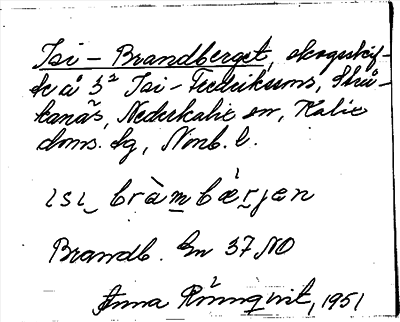 Isi-Brandberget, skogsskif-
te å 3² Isi-Fredriksons, Strå-
kanäs, Nederkalix sn, Kalix
doms. sg, Norrb. l.
ısı bràmbǽrjen
Brandb. En 37 NO
Anna Rönnqvist, 1951